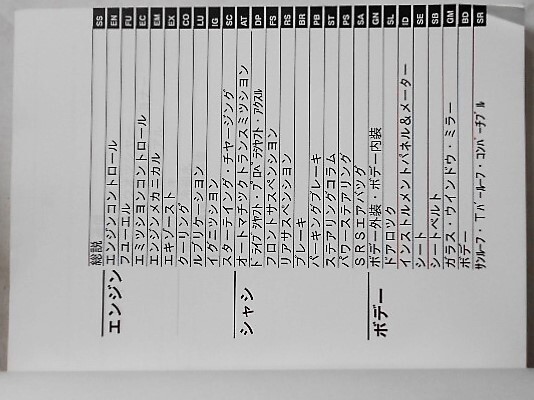 総説 SS
エンジン
エンジンコントロール EN
フューエル FU
エミッションコントロール EC
エンジンメカニカル EM
エキゾースト EX
クーリング CO
ルブリケーション LU
イグニッション IG
スターティング・チャージング SC
シャシ
オートマチックトランスミッション AT
ドライブシャフト・プロペラシャフト・アクスル DP
フロントサスペンション FS
リアサスペンション RS
ブレーキ BR
パーキングブレーキ PB
ステアリングコラム ST
パワーステアリング PS
SRSエアバッグ SA
ボデー
ボデー外装・ボデー内装 GN
ドアロック SL
インストルメントパネル&メーター ID
シート SE
シートベルト SB
ガラス・ウインドウ・ミラー GM
ボデー BD
サンルーフ・Tバールーフ・コンバーチブル SR